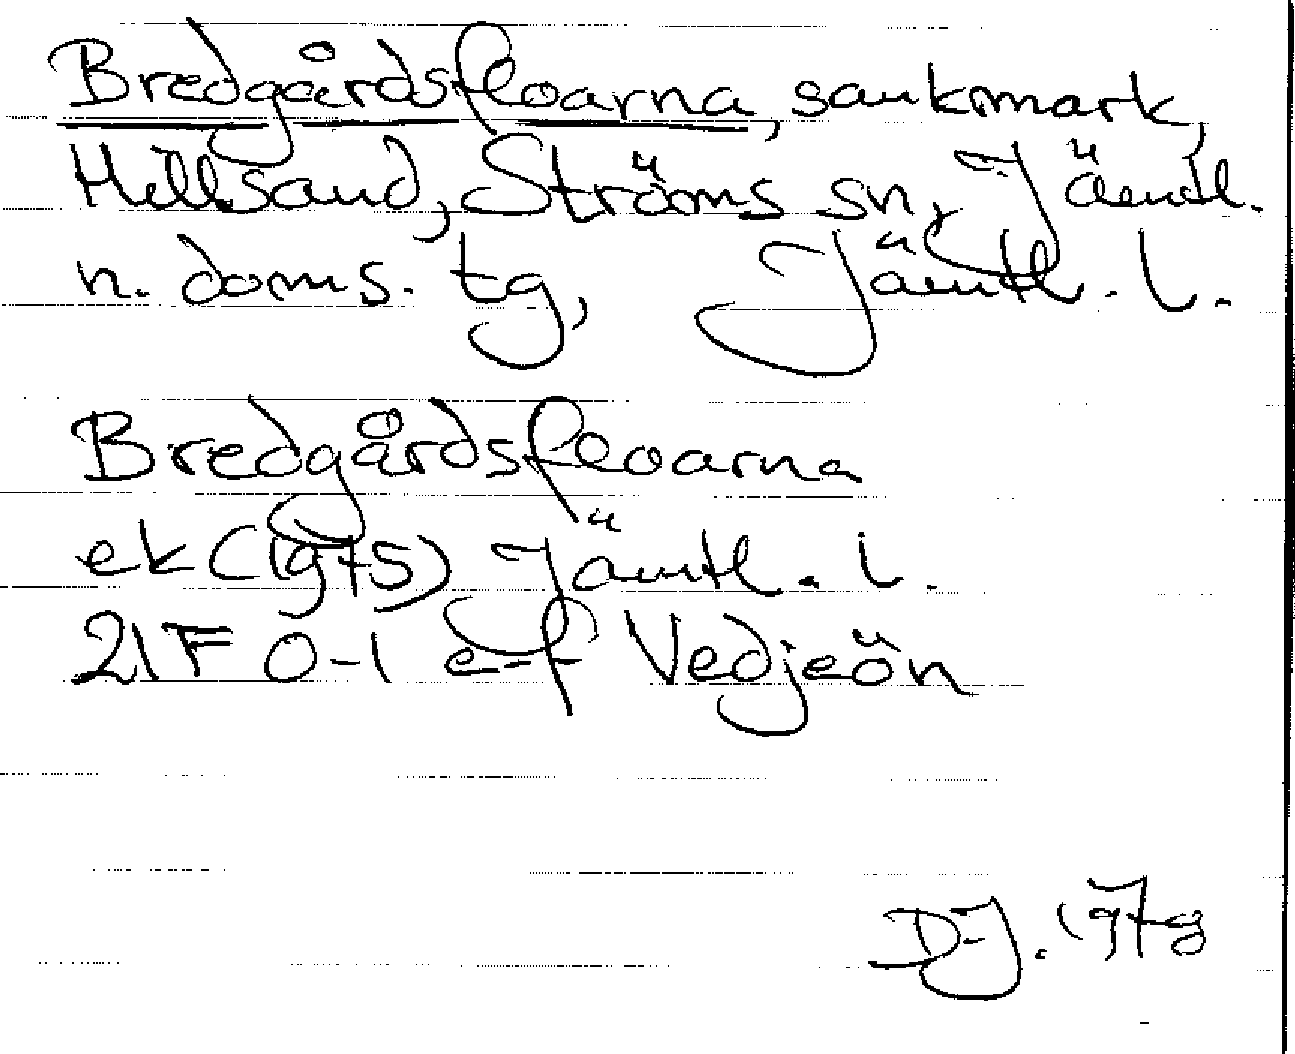 Bredgårdsfloarna, sankmark,
Hillsand, Ströms sn, Jämtl.
n. doms. tg, Jämtl. l.
Bredgårdsfloarna
ek (1975) Jämtl. l.
21F 0-1 e-f Vedjeön
DJ. 1979